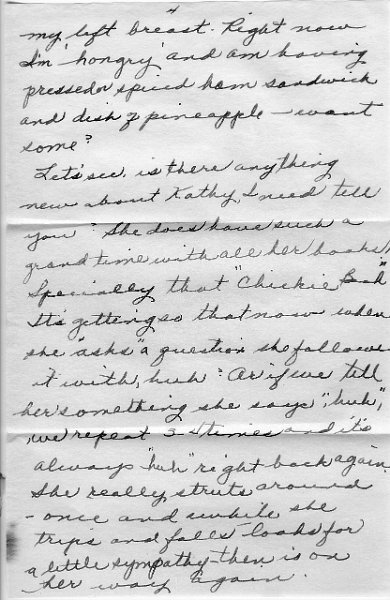 4
my left breast. Right now
I'm 'hongry' and am having
pressed or spiced ham sandwich
and dish of pineapple – want
some?
Let's see, is there anything
new about Kathy I need tell
you? She does have such a
grand time with all her books,
Specially that "Chickie Book"
It's getting so that now when
she "asks" a question she follows
it with, huh? Or if we tell
her something she says "huh",
we repeat 3-4 times and it's
always "huh" right back again.
She really struts around
- once and while she
trips and falls looks for
a little sympathy then is on
her way again.